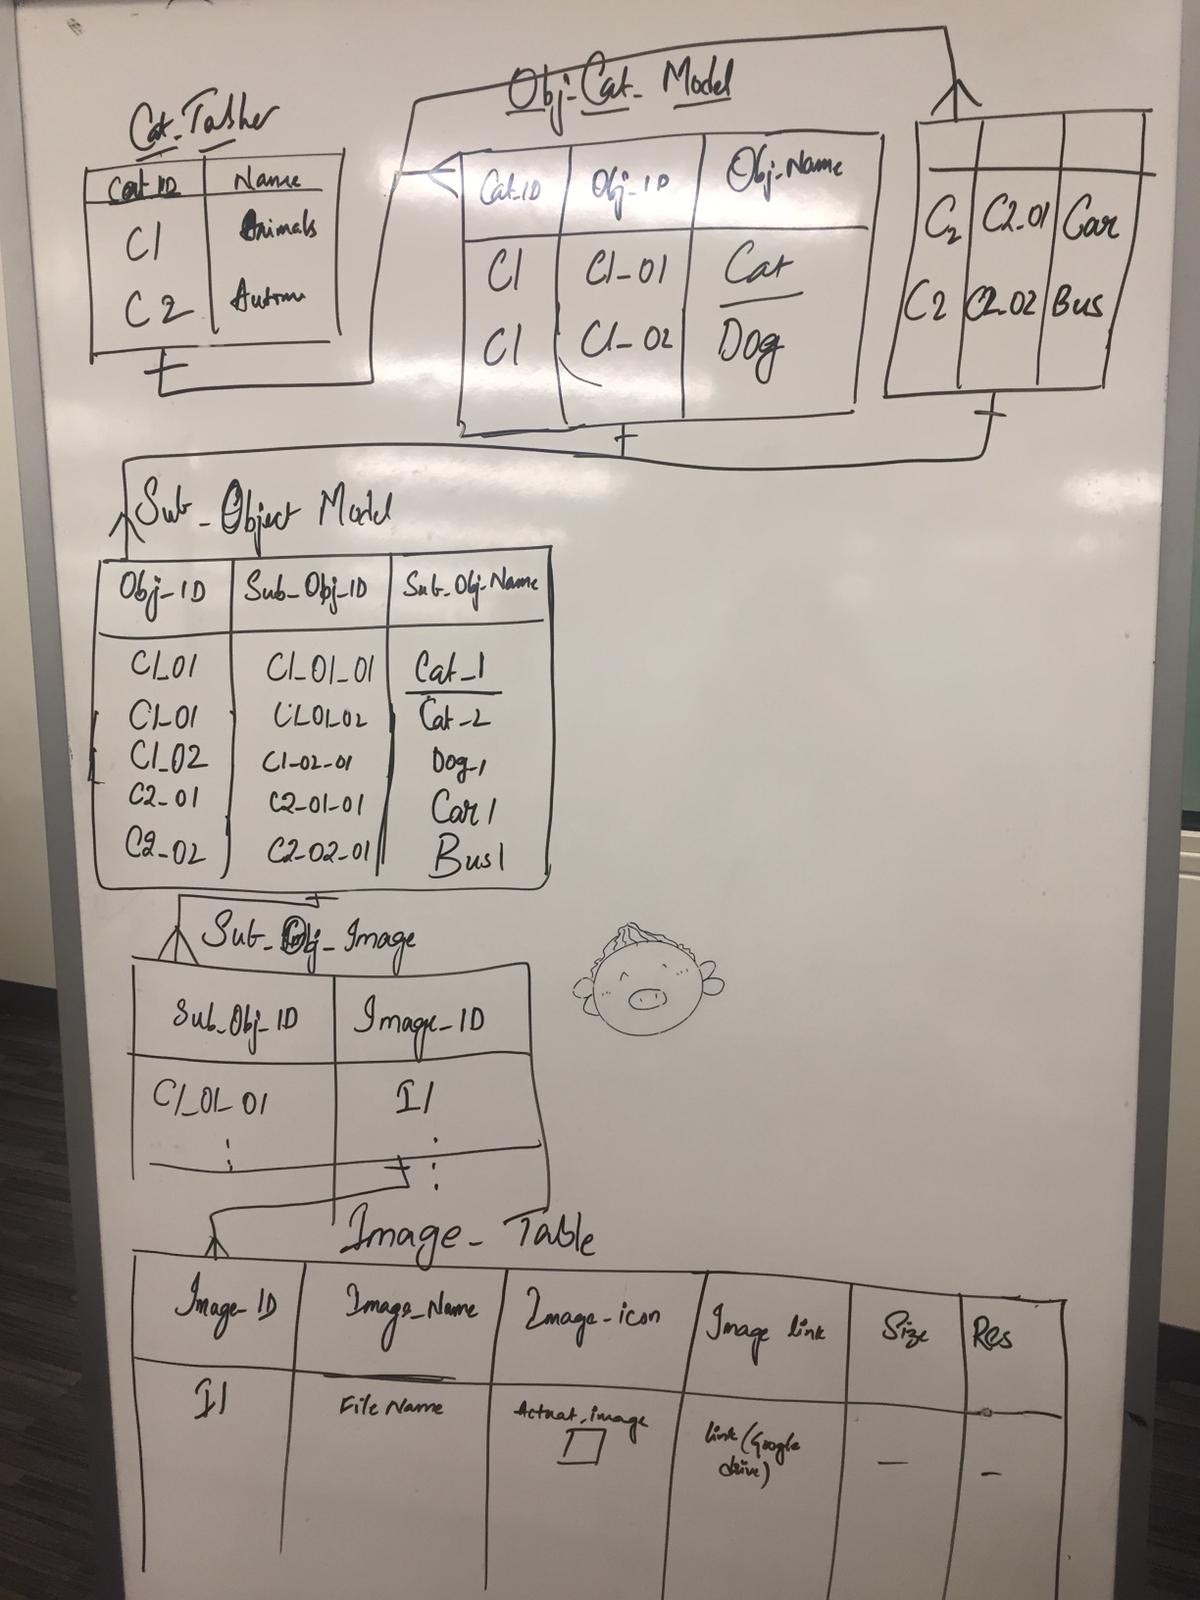 Obj_Cat_Model
Cat_ID Name
C1 Animals
C2 Autom
Cat_ID Obj_ID Obj_Name
C1 C1_01 Cat
C1 C1_02 Dog
C2 C2_01 Car
C2 C2_02 Bus
Sub_Object Model
Obj_ID Sub_Obj_ID Sub_Obj_Name
C1_01 C1_01_01 Cat_1
C1_01 C1_01_02 Cat_2
C1_02 C1_02_01 Dog_1
C2_01 C2_01_01 Car1
C2_02 C2_02_01 Bus1
Sub_Obj_Image
Sub_Obj_ID Image_ID
C1_01_01 I1
Image_Table
Image_ID Image_Name Image_icon Image link Size Res
I1 File Name Actual_image link (Google
drive) — —